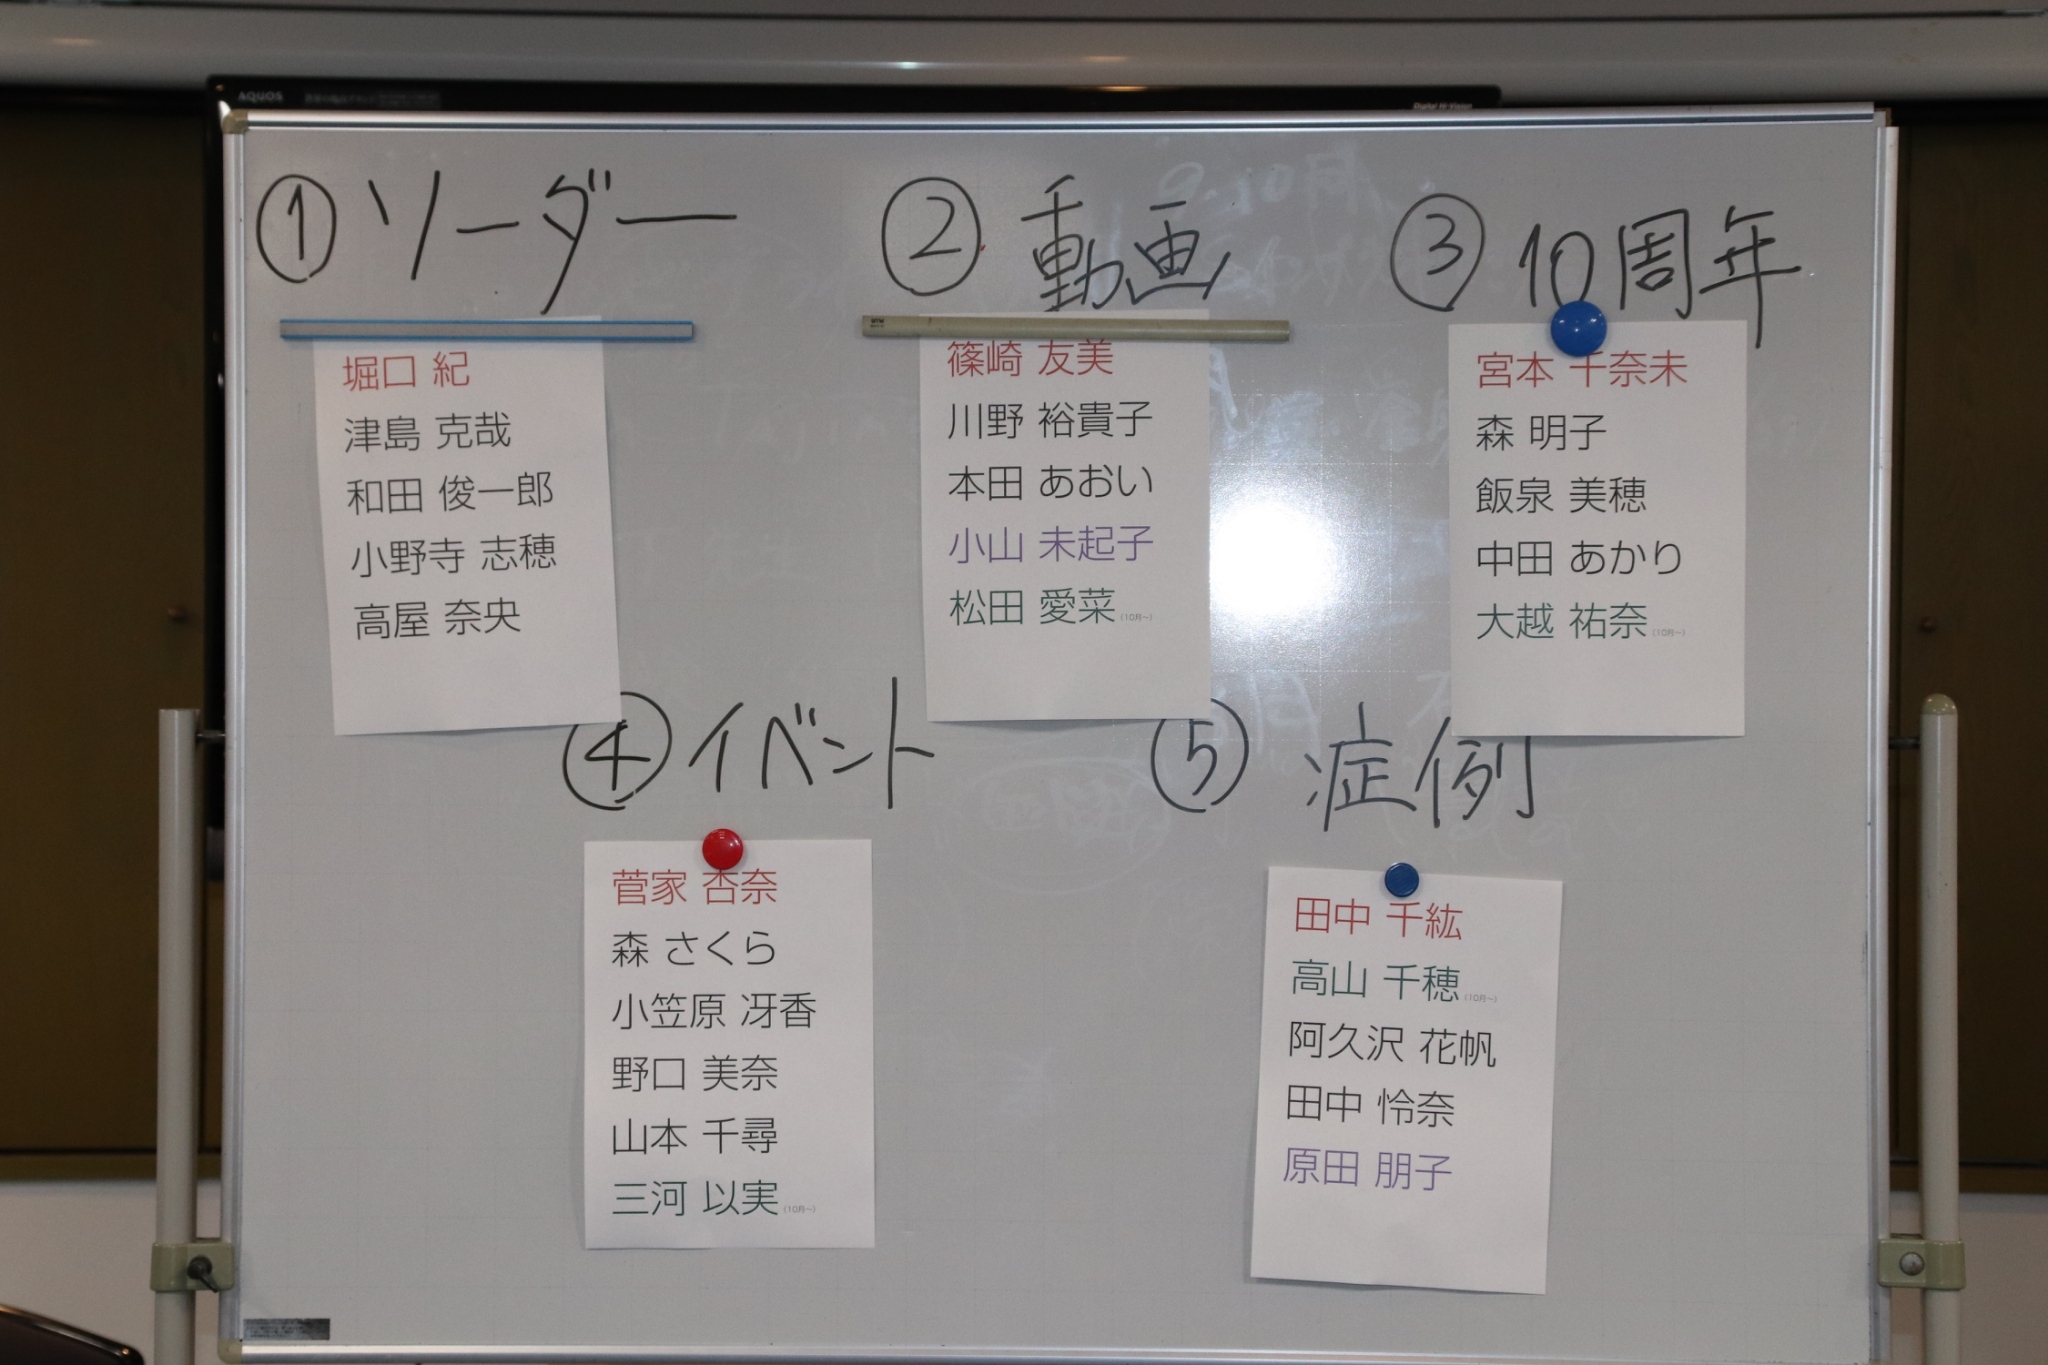 AQUOS
Digital Hi-Vision
① ソーダー
堀口 紀
津島 克哉
和田 俊一郎
小野寺 志穂
高屋 奈央
② 動画
篠崎 友美
川野 裕貴子
本田 あおい
小山 未起子
松田 愛菜 (10月~)
③ 10周年
宮本 千奈未
森 明子
飯泉 美穂
中田 あかり
大越 祐奈 (10月~)
④ イベント
菅家 杏奈
森 さくら
小笠原 冴香
野口 美奈
山本 千尋
三河 以実 (10月~)
⑤ 症例
田中 千紘
高山 千穂 (10月~)
阿久沢 花帆
田中 怜奈
原田 朋子